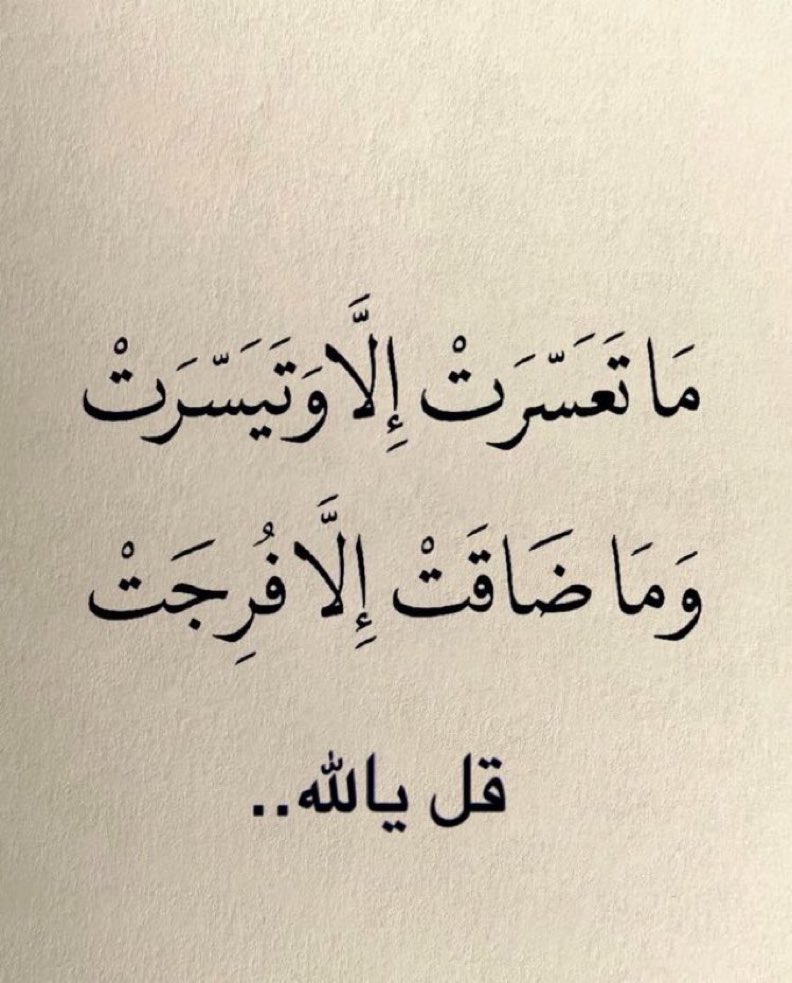 مَا تَعَسّرَتْ إِلَّا وَتَيَسّرَتْ
وَمَا ضَاقَتْ إِلَّا فُرِجَتْ
قل يالله..